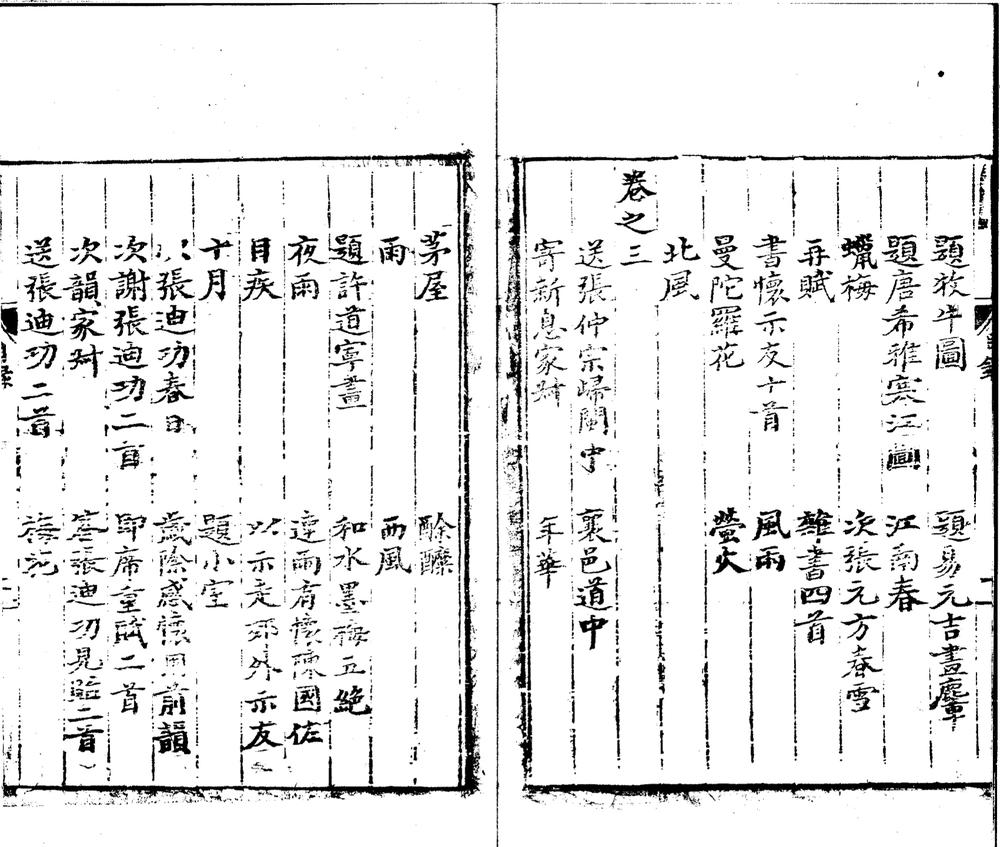 題牧牛圖 題易元吉畫麞
題唐希雅寒江圖 江南春
蠟梅 次張元方春雪
再賦 雜書四首
書懷示友十首 風雨
曼陀羅花 螢火
北風
卷之三
送張仲宗歸閩中 襄邑道中
寄新息家叔 年華
茅屋 酴醾
雨 西風
題許道寧畫 和水墨梅五絶
夜雨 連雨有懷陳國佐
目疾 以示走郊外示友
十月 題小室
張迪功春日 歲陰感懷用前韻
次謝張迪功二首 即席重賦二首
次韻家叔 答張迪功見貽二首
送張迪功二首 梅花
目錄